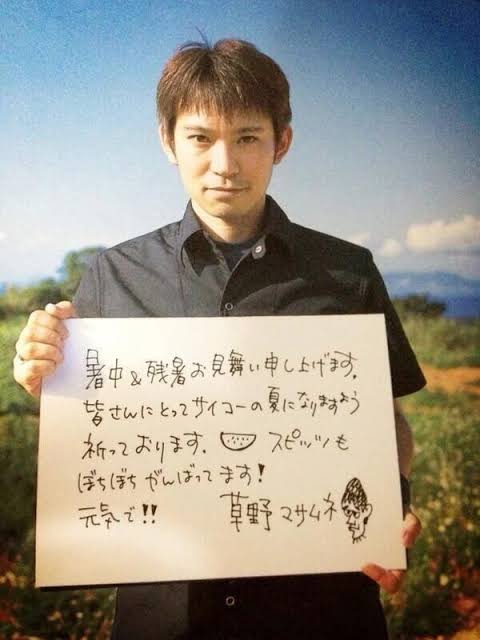 暑中&残暑お見舞い申し上げます。
皆さんにとってサイコーの夏になりますよう
祈っております。 スピッツも
ぼちぼちがんばってます!
元気で!! 草野マサムネ